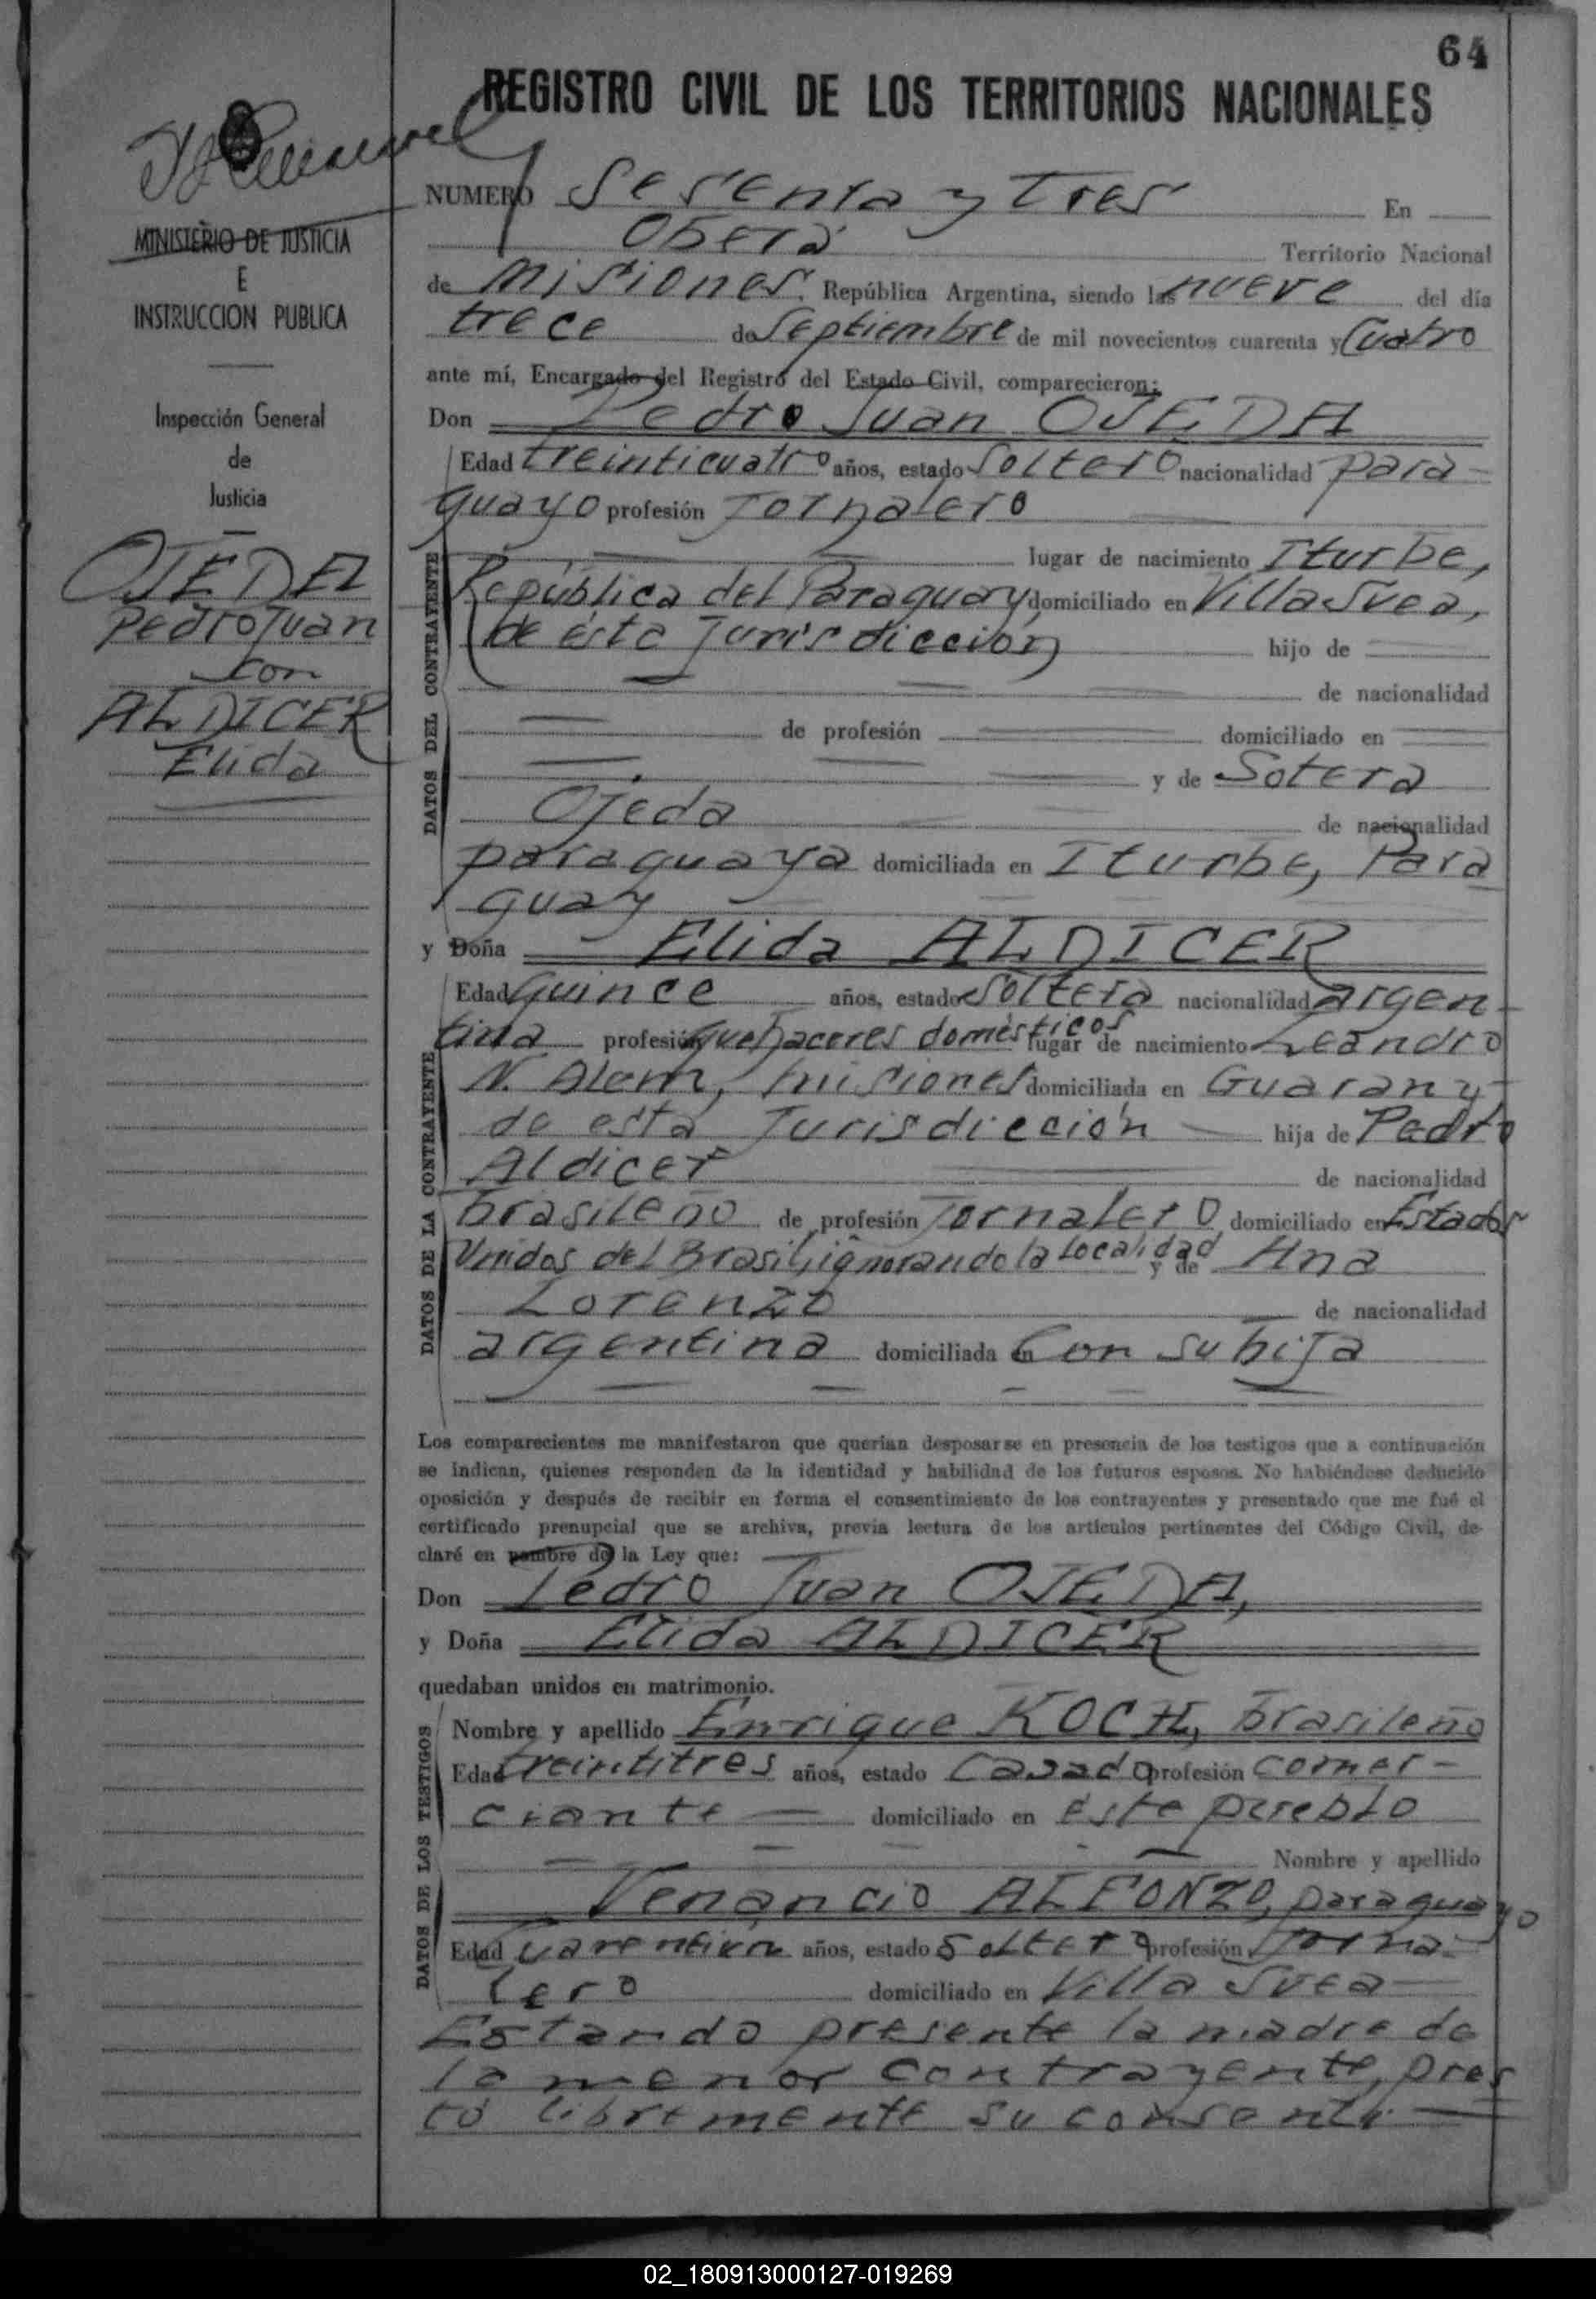 64
REGISTRO CIVIL DE LOS TERRITORIOS NACIONALES
MINISTERIO DE JUSTICIA
E
INSTRUCCION PUBLICA
Inspección General
de
Justicia
OJEDA
Pedro Juan
con
ALDICER
Elida
NUMERO Sesenta y Tres En
Oberá Territorio Nacional
de Misiones, República Argentina, siendo las nueve del día
trece de Septiembre de mil novecientos cuarenta y Cuatro
ante mí, Encargado del Registro del Estado Civil, comparecieron:
Don Pedro Juan OJEDA
Edad treinticuatro años, estado Soltero nacionalidad para-
guayo profesión Jornalero
lugar de nacimiento Iturbe,
República del Paraguay domiciliado en Villa Svea,
(de ésta Jurisdicción) hijo de
de nacionalidad
de profesión domiciliado en
y de Sotera
Ojeda de nacionalidad
paraguaya domiciliada en Iturbe, Para
guay
y Doña Elida ALDICER
Edad Quince años, estado Soltera nacionalidad argen-
tina profesión quehaceres domésticos lugar de nacimiento Leandro
N. Alem, Misiones domiciliada en Guarany
de esta Jurisdicción hija de Pedro
Aldicer de nacionalidad
brasileño de profesión Jornalero domiciliado en Estados
Unidos del Brasil, ignorando la localidad y de Ana
Lorenzo de nacionalidad
argentina domiciliada en Con su hija
DATOS DEL CONTRAYENTE
DATOS DE LA CONTRAYENTE
Los comparecientes me manifestaron que querían desposarse en presencia de los testigos que a continuación
se indican, quienes responden de la identidad y habilidad de los futuros esposos. No habiéndose deducido
oposición y después de recibir en forma el consentimiento de los contrayentes y presentado que me fué el
certificado prenupcial que se archiva, previa lectura de los artículos pertinentes del Código Civil, de-
claré en nombre de la Ley que:
Don Pedro Juan OJEDA,
y Doña Elida ALDICER
quedaban unidos en matrimonio.
Nombre y apellido Enrique KOCH, brasileño
Edad treintitres años, estado Casado profesión comer-
ciante domiciliado en éste pueblo
Nombre y apellido
Venancio ALFONZO, paraguayo
Edad Cuarentiún años, estado Soltero profesión Jorna-
lero domiciliado en Villa Svea
DATOS DE LOS TESTIGOS
Estando presente la madre de
la menor contrayente, pres
tó libremente su consenti-
02_180913000127-019269